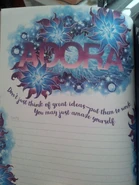 ADORA
Don't just think of great ideas—put them to work!
You may just amaze yourself.